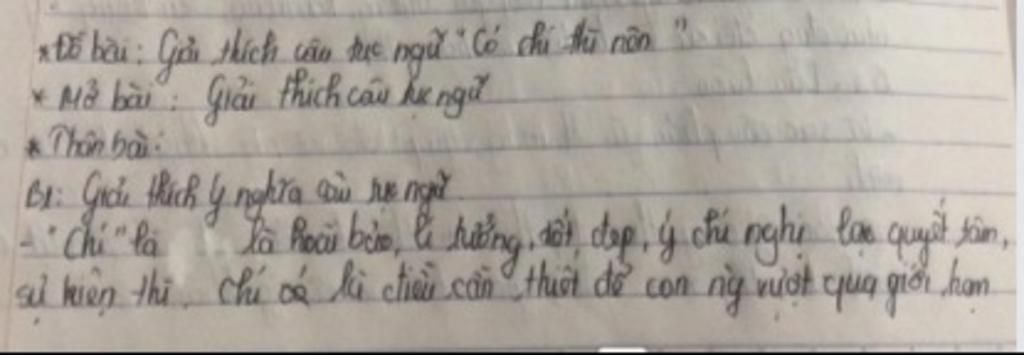 * Đề bài: Giải thích câu tục ngữ "Có chí thì nên"
* Mở bài: Giải thích câu tục ngữ
* Thân bài:
B1: Giải thích ý nghĩa câu tục ngữ
- "Chí" là là hoài bão, lí tưởng, tốt đẹp, ý chí nghị lực quyết tâm,
sự kiên thì. Chí có là điều cần thiết để con ng vượt qua giới hạn